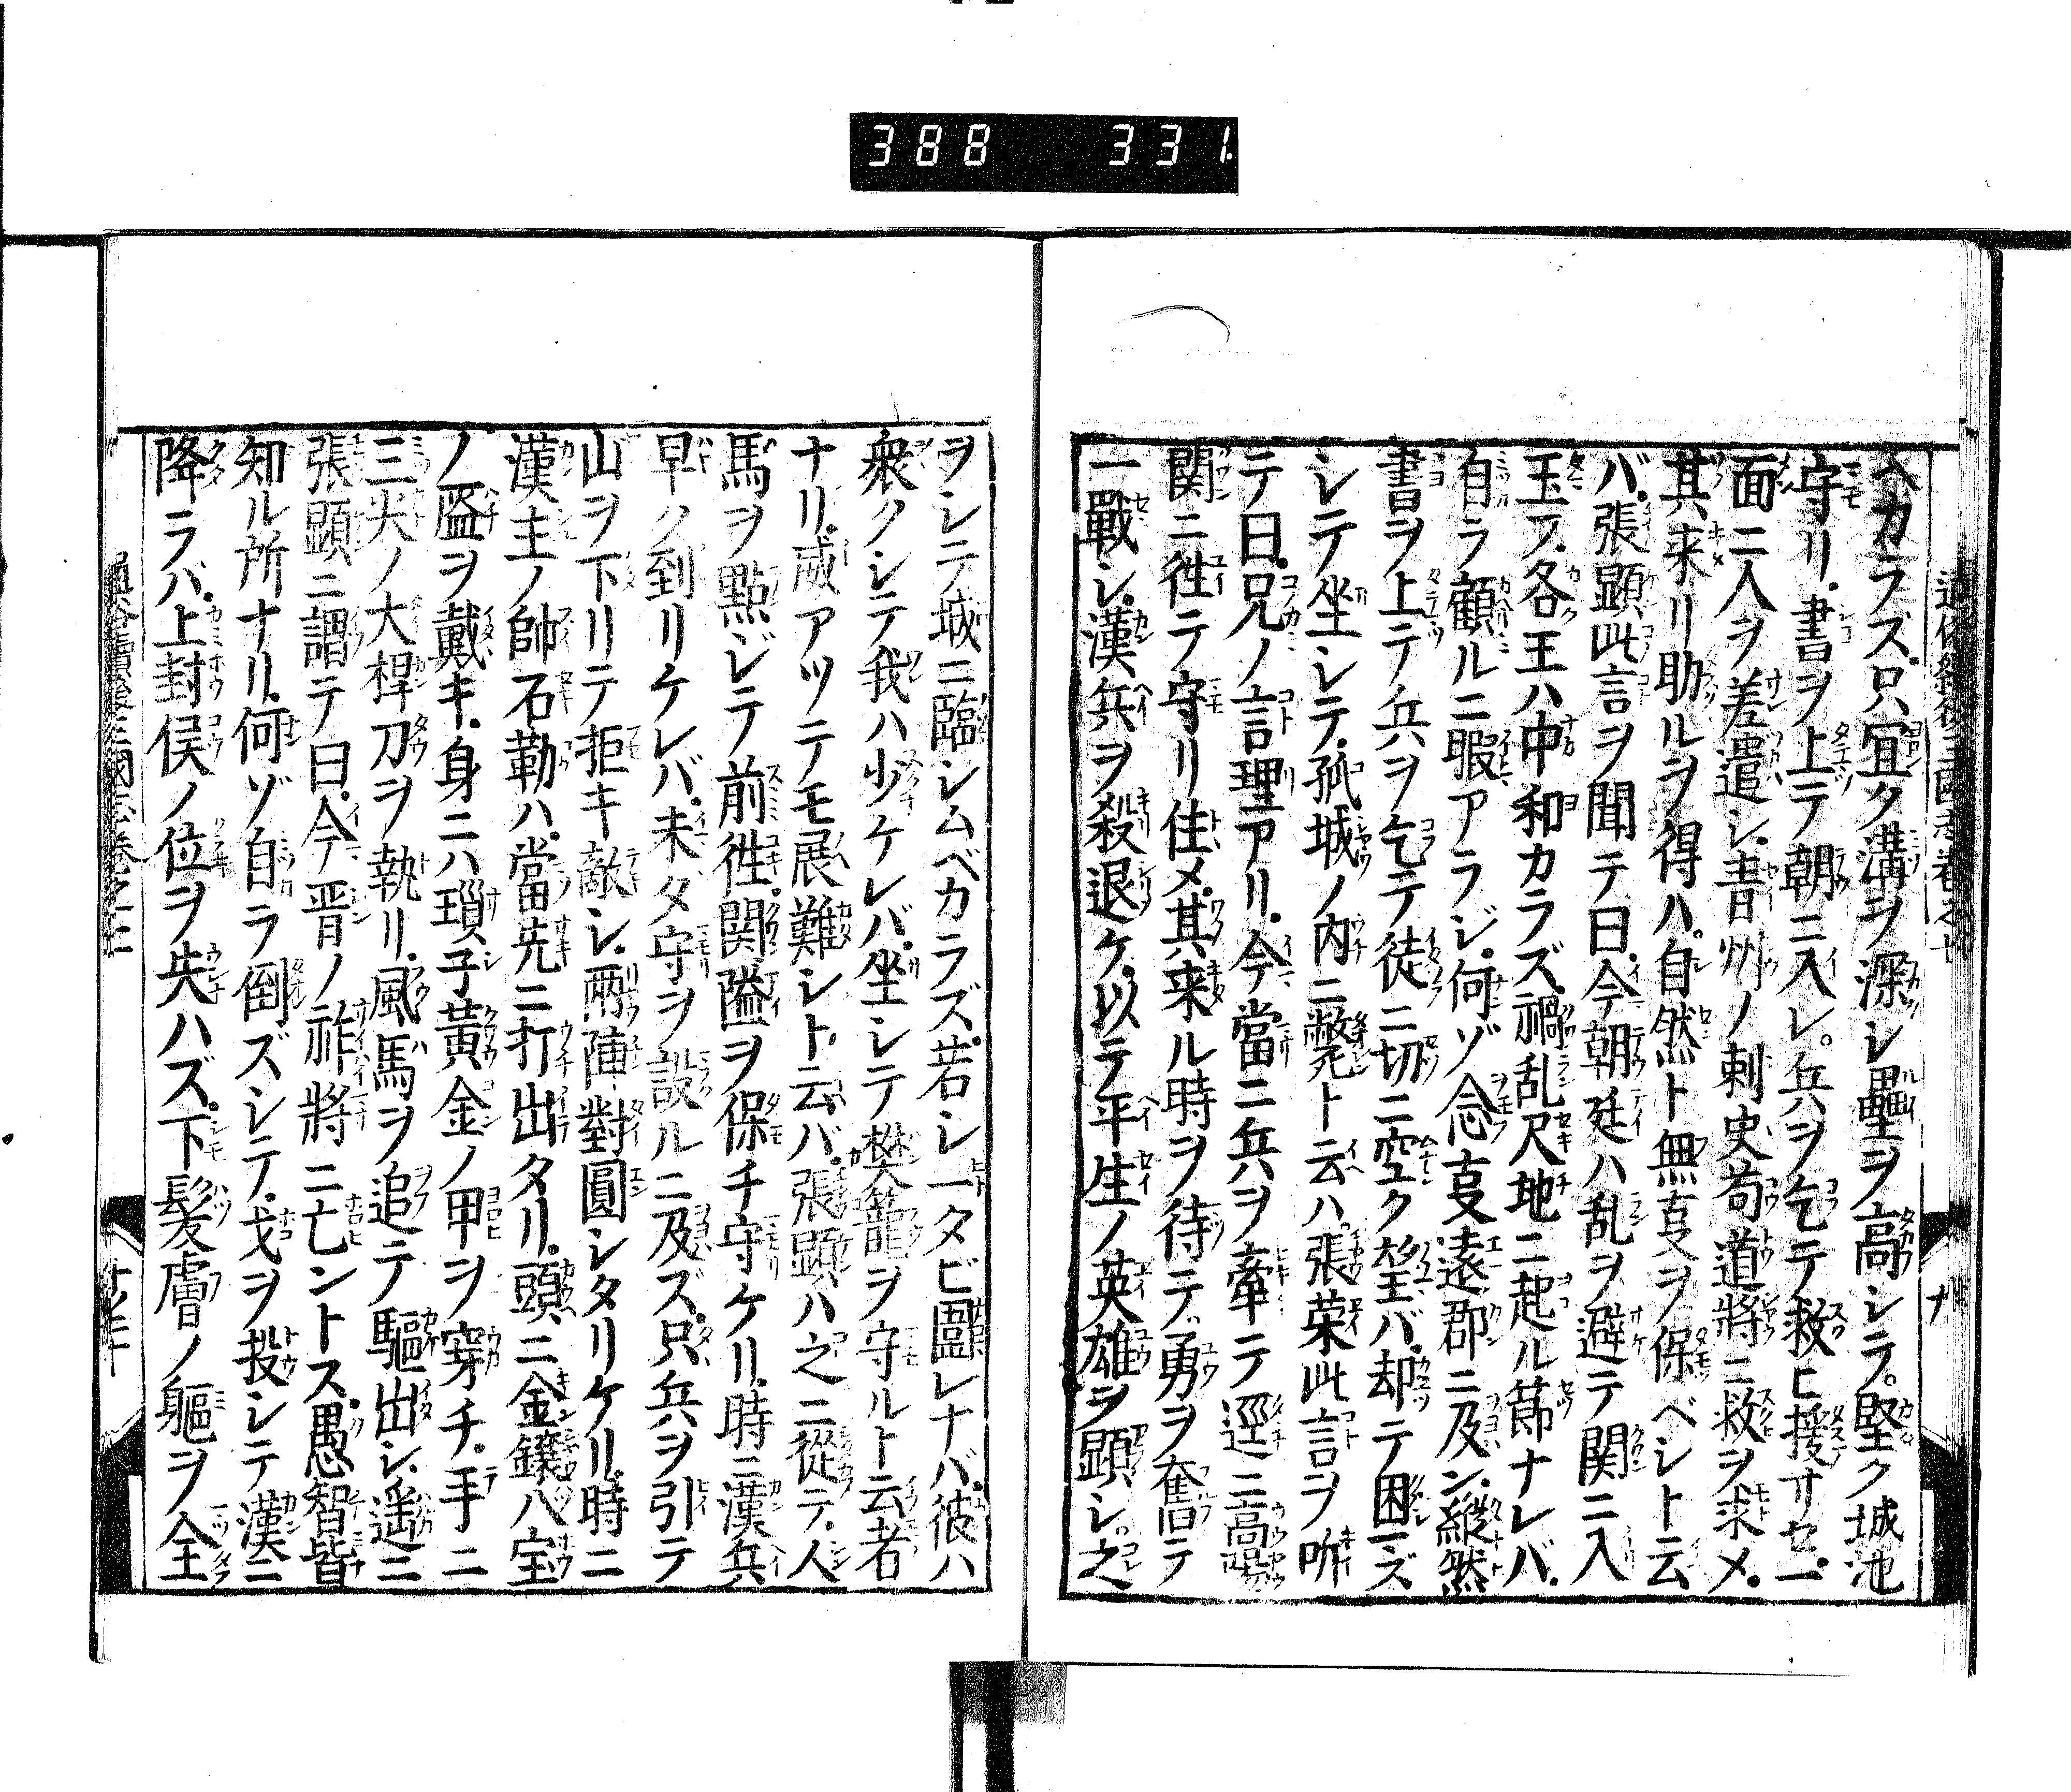 388 331
ヘカラズ．只宜ク溝ヲ深シ壘ヲ高シテ。堅ク城池
守リ．書ヲ上テ朝ニ入レ。兵ヲ乞テ救ヒ援サセ．一
面ニ人ヲ差遣シ．青州ノ刺史苟道將ニ救ヲ求メ．
其来リ助ルヲ得ハ．自然ト無叓ヲ保ベシト云
バ．張顕此言ヲ聞テ曰．今朝廷ハ乱ヲ避テ関ニ入
玉フ．各王ハ中和カラズ．禍乱尺地ニ起ル節ナレバ．
自ラ顧ルニ暇アラジ．何ゾ念叓遠郡ニ及ン．縱然
書ヲ上テ兵ヲ乞テ徒ニ切ニ空ク望バ．却テ困ズ
シテ坐シテ．孤城ノ内ニ斃ト云ハ．張荣此言ヲ听
テ曰．兄ノ言理アリ．今當ニ兵ヲ牽テ逕ニ高陽
関ニ徃テ守リ住メ．其来ル時ヲ待テ．勇ヲ奮テ
一戰シ．漢兵ヲ殺退ケ．以テ平生ノ英雄ヲ顕シ．之
ヲシテ城ニ臨シムベカラズ．若シ一タビ圍レナバ．彼ハ
衆クシテ我ハ少ケレバ．坐シテ樊籠ヲ守ルト云者
ナリ．威アツテモ展難シト．云バ．張顕ハ之ニ從テ．人
馬ヲ點ジテ前徃．関隘ヲ保チ守ケリ．時ニ漢兵
早ク到リケレバ．未ダ守ヲ設ルニ及ズ．只兵ヲ引テ
山ヲ下リテ拒キ敵シ．兩陣對圓シタリケリ．時ニ
漢主ノ帥石勒ハ．當先ニ打出タリ．頭ニ金鑲八宝
ノ盔ヲ戴キ．身ニハ瑣子黃金ノ甲ヲ穿チ．手ニ
三尖ノ大桿刀ヲ執リ．風馬ヲ追テ驅出シ．遥ニ
張顕ニ謂テ曰．今晋ノ祚將ニ亡ントス．愚智皆
知ル所ナリ．何ゾ自ラ倒ズシテ．戈ヲ投シテ漢ニ
降ラバ．上封侯ノ位ヲ失ハズ．下髮膚ノ軀ヲ全